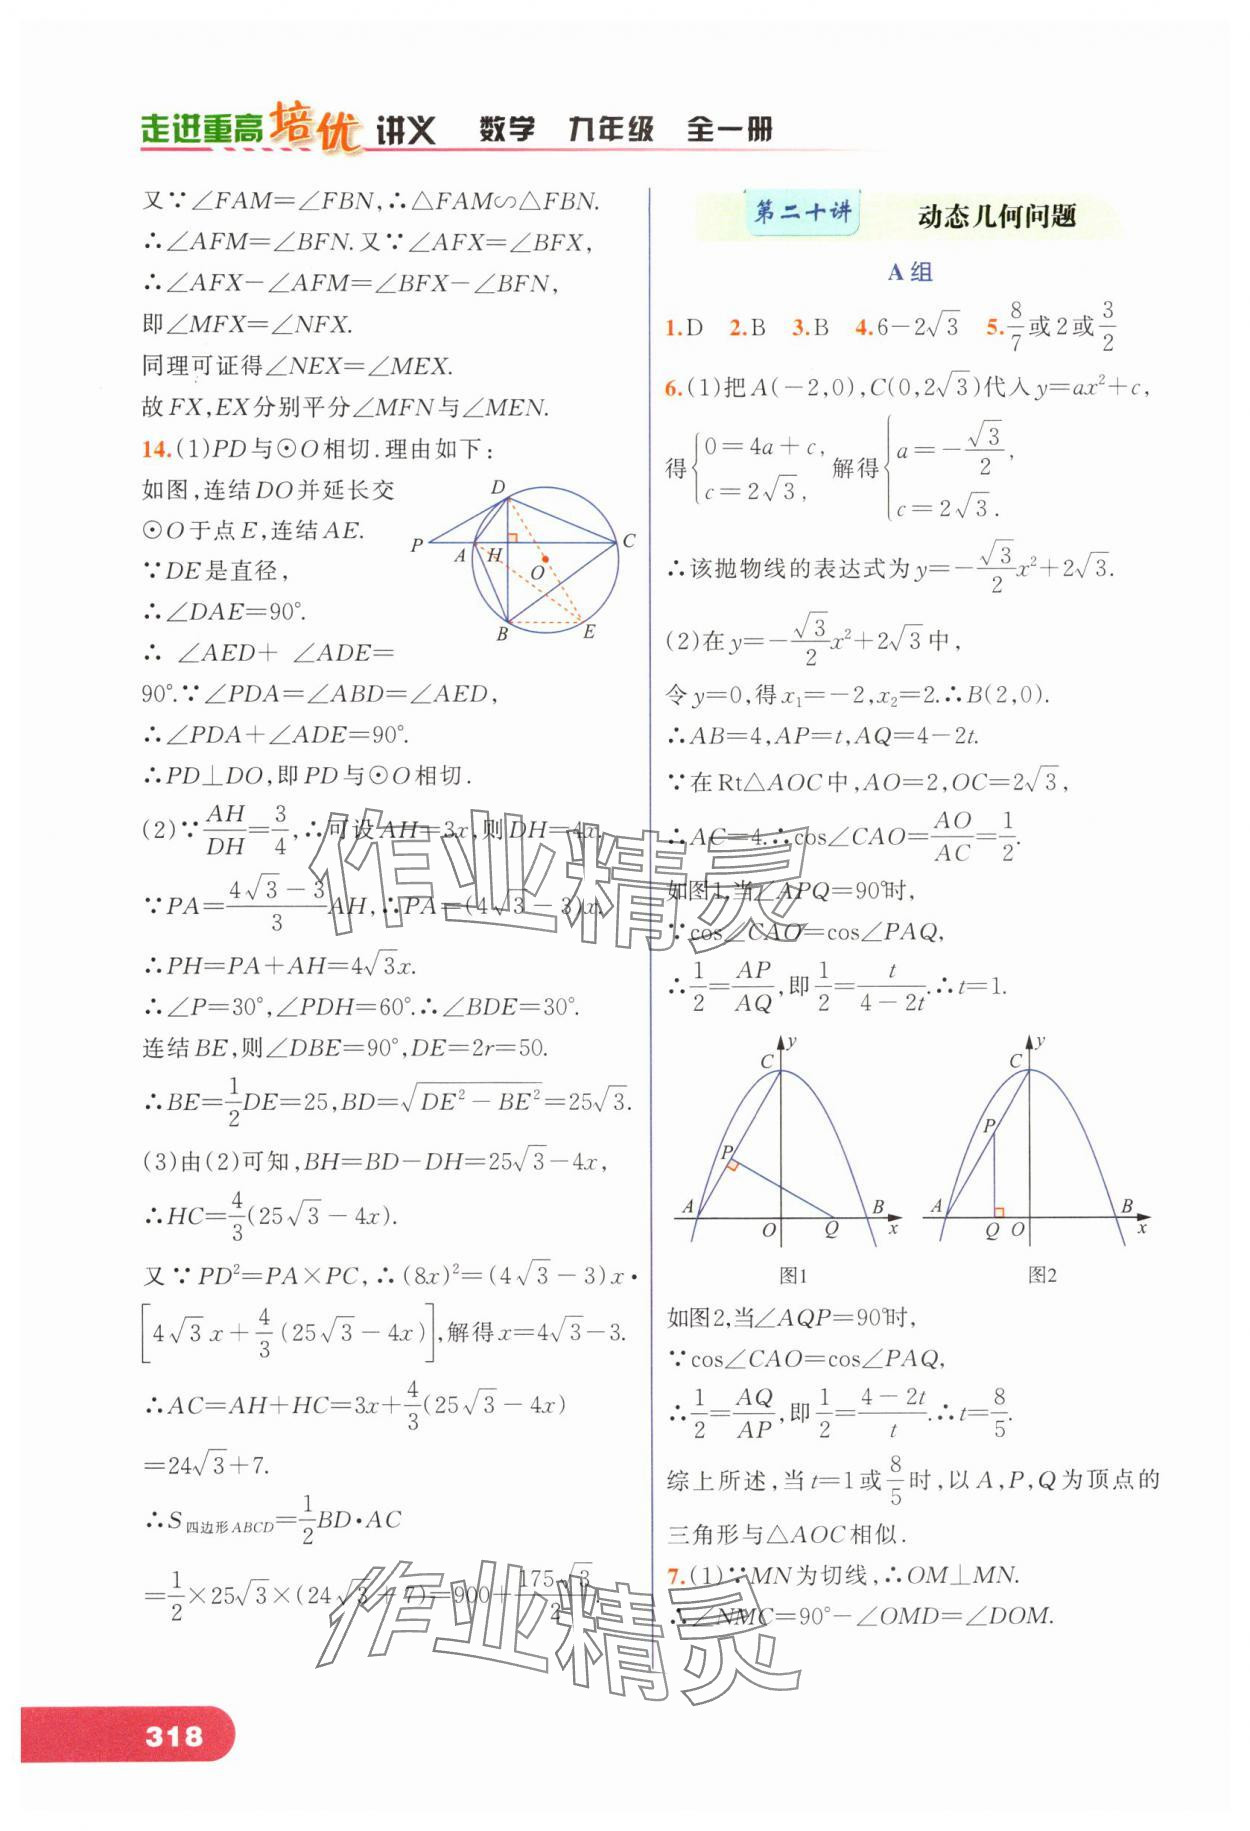 走进重高培优讲义 数学 九年级 全一册
又∵∠FAM=∠FBN,∴△FAM∽△FBN.
∴∠AFM=∠BFN.又∵∠AFX=∠BFX,
∴∠AFX-∠AFM=∠BFX-∠BFN,
即∠MFX=∠NFX.
同理可证得∠NEX=∠MEX.
故FX,EX分别平分∠MFN与∠MEN.
14.(1)PD与⊙O相切.理由如下:
如图,连结DO并延长交
⊙O于点E,连结AE.
∵DE是直径,
∴∠DAE=90°.
∴ ∠AED+ ∠ADE=
90°.∵∠PDA=∠ABD=∠AED,
∴∠PDA+∠ADE=90°.
∴PD⊥DO,即PD与⊙O相切.
D
P A H C
O
B E
(2)∵AH/DH=3/4,∴可设AH=3x,则DH=4x.
∵PA=(4√3-3)/3 AH,∴PA=(4√3-3)x.
∴PH=PA+AH=4√3x.
∴∠P=30°,∠PDH=60°.∴∠BDE=30°.
连结BE,则∠DBE=90°,DE=2r=50.
∴BE=1/2DE=25,BD=√(DE²-BE²)=25√3.
(3)由(2)可知,BH=BD-DH=25√3-4x,
∴HC=4/3(25√3-4x).
又∵PD²=PA×PC,∴(8x)²=(4√3-3)x·
[4√3x+4/3(25√3-4x)],解得x=4√3-3.
∴AC=AH+HC=3x+4/3(25√3-4x)
=24√3+7.
∴S四边形ABCD=1/2BD·AC
=1/2×25√3×(24√3+7)=900+175√3/2.
第二十讲 动态几何问题
A组
1.D 2.B 3.B 4.6-2√3 5.8/7或2或3/2
6.(1)把A(-2,0),C(0,2√3)代入y=ax²+c,
得{0=4a+c, c=2√3, 解得{a=-√3/2, c=2√3.
∴该抛物线的表达式为y=-√3/2x²+2√3.
(2)在y=-√3/2x²+2√3中,
令y=0,得x₁=-2,x₂=2.∴B(2,0).
∴AB=4,AP=t,AQ=4-2t.
∵在Rt△AOC中,AO=2,OC=2√3,
∴AC=4.∴cos∠CAO=AO/AC=1/2.
如图1,当∠APQ=90°时,
∵cos∠CAO=cos∠PAQ,
∴1/2=AP/AQ,即1/2=t/(4-2t).∴t=1.
C y
P
A O Q B x
图1
C y
P
A Q O B x
图2
如图2,当∠AQP=90°时,
∵cos∠CAO=cos∠PAQ,
∴1/2=AQ/AP,即1/2=(4-2t)/t.∴t=8/5.
综上所述,当t=1或8/5时,以A,P,Q为顶点的
三角形与△AOC相似.
7.(1)∵MN为切线,∴OM⊥MN.
∴∠NMC=90°-∠OMD=∠DOM.
作业精灵
作业精灵
318